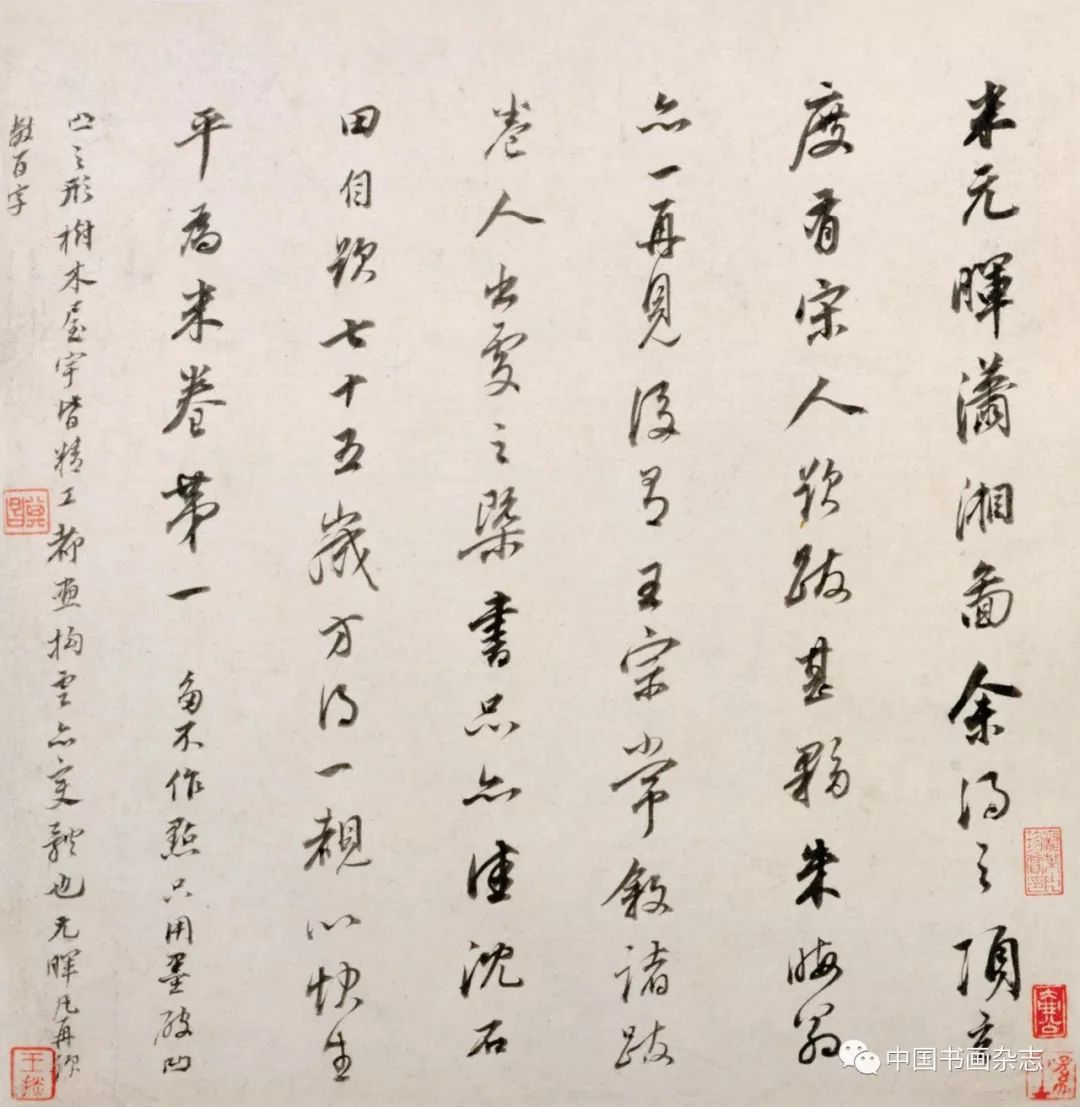 米元暉瀟湘圖余得之項玄
度有宋人題跋甚夥朱晦翁
亦一再見後有王宗常敘諸跋
卷人出處之槩書品亦佳沈石
田自題七十五歲方得一觀以快生
平為米卷第一 多不作點只用墨破凹
凸之形樹木屋宇皆精工都畫雲亦变體也元暉凡再題
數百字
其昌
中国书画杂志